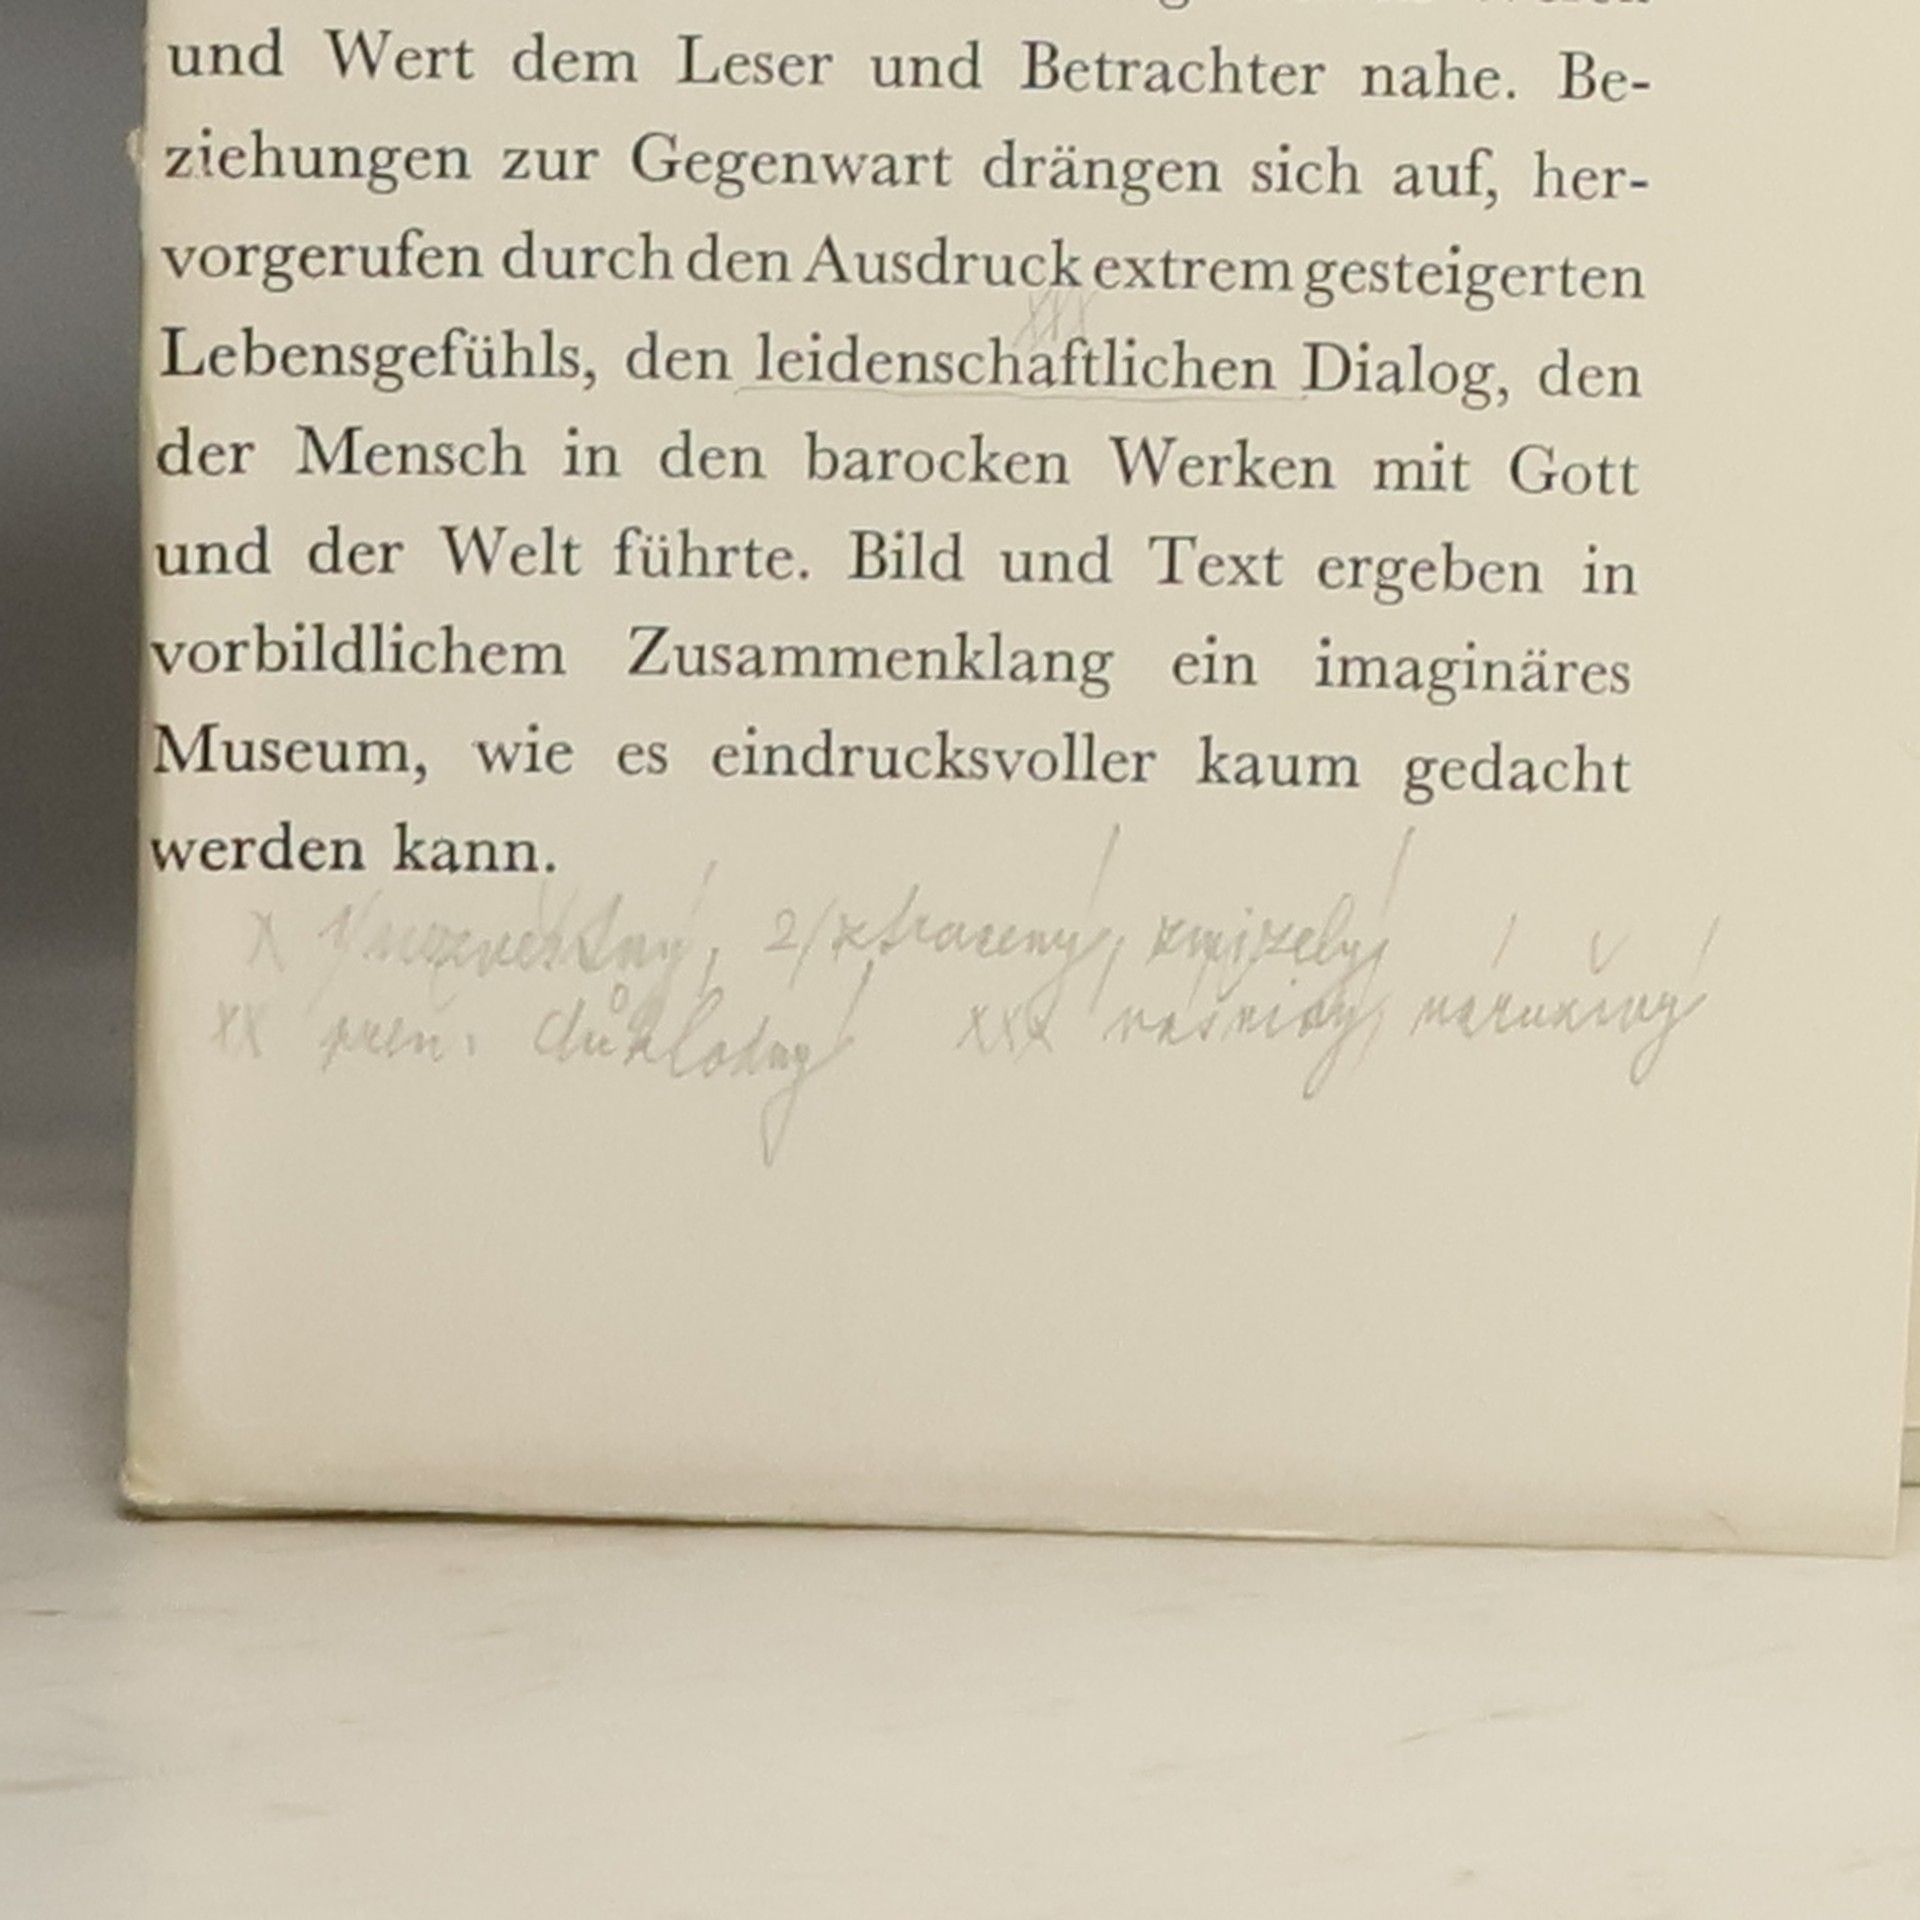 und Wert dem Leser und Betrachter nahe. Be-
ziehungen zur Gegenwart drängen sich auf, her-
vorgerufen durch den Ausdruck extrem gesteigerten
xxx
Lebensgefühls, den leidenschaftlichen Dialog, den
der Mensch in den barocken Werken mit Gott
und der Welt führte. Bild und Text ergeben in
vorbildlichem Zusammenklang ein imaginäres
Museum, wie es eindrucksvoller kaum gedacht
werden kann.
x 1/nezvěstný, 2/ztracený, zmizelý
xx přen. důkladný xxx vášnivý, náruživý